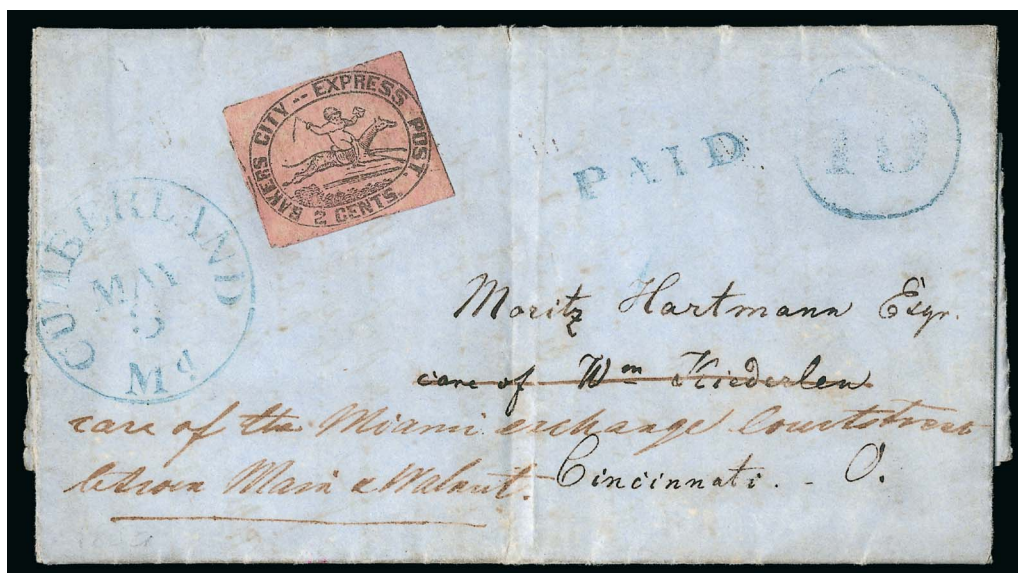 BAKERS CITY -- EXPRESS POST.
2 CENTS.
PAID
10
CUMBERLAND
MAY
Md
Moritz Hartmann Esqr.
care of Wm Kiederlen
care of the Miami exchange Courtstreet
between Main & Walnut.
Cincinnati. - O.